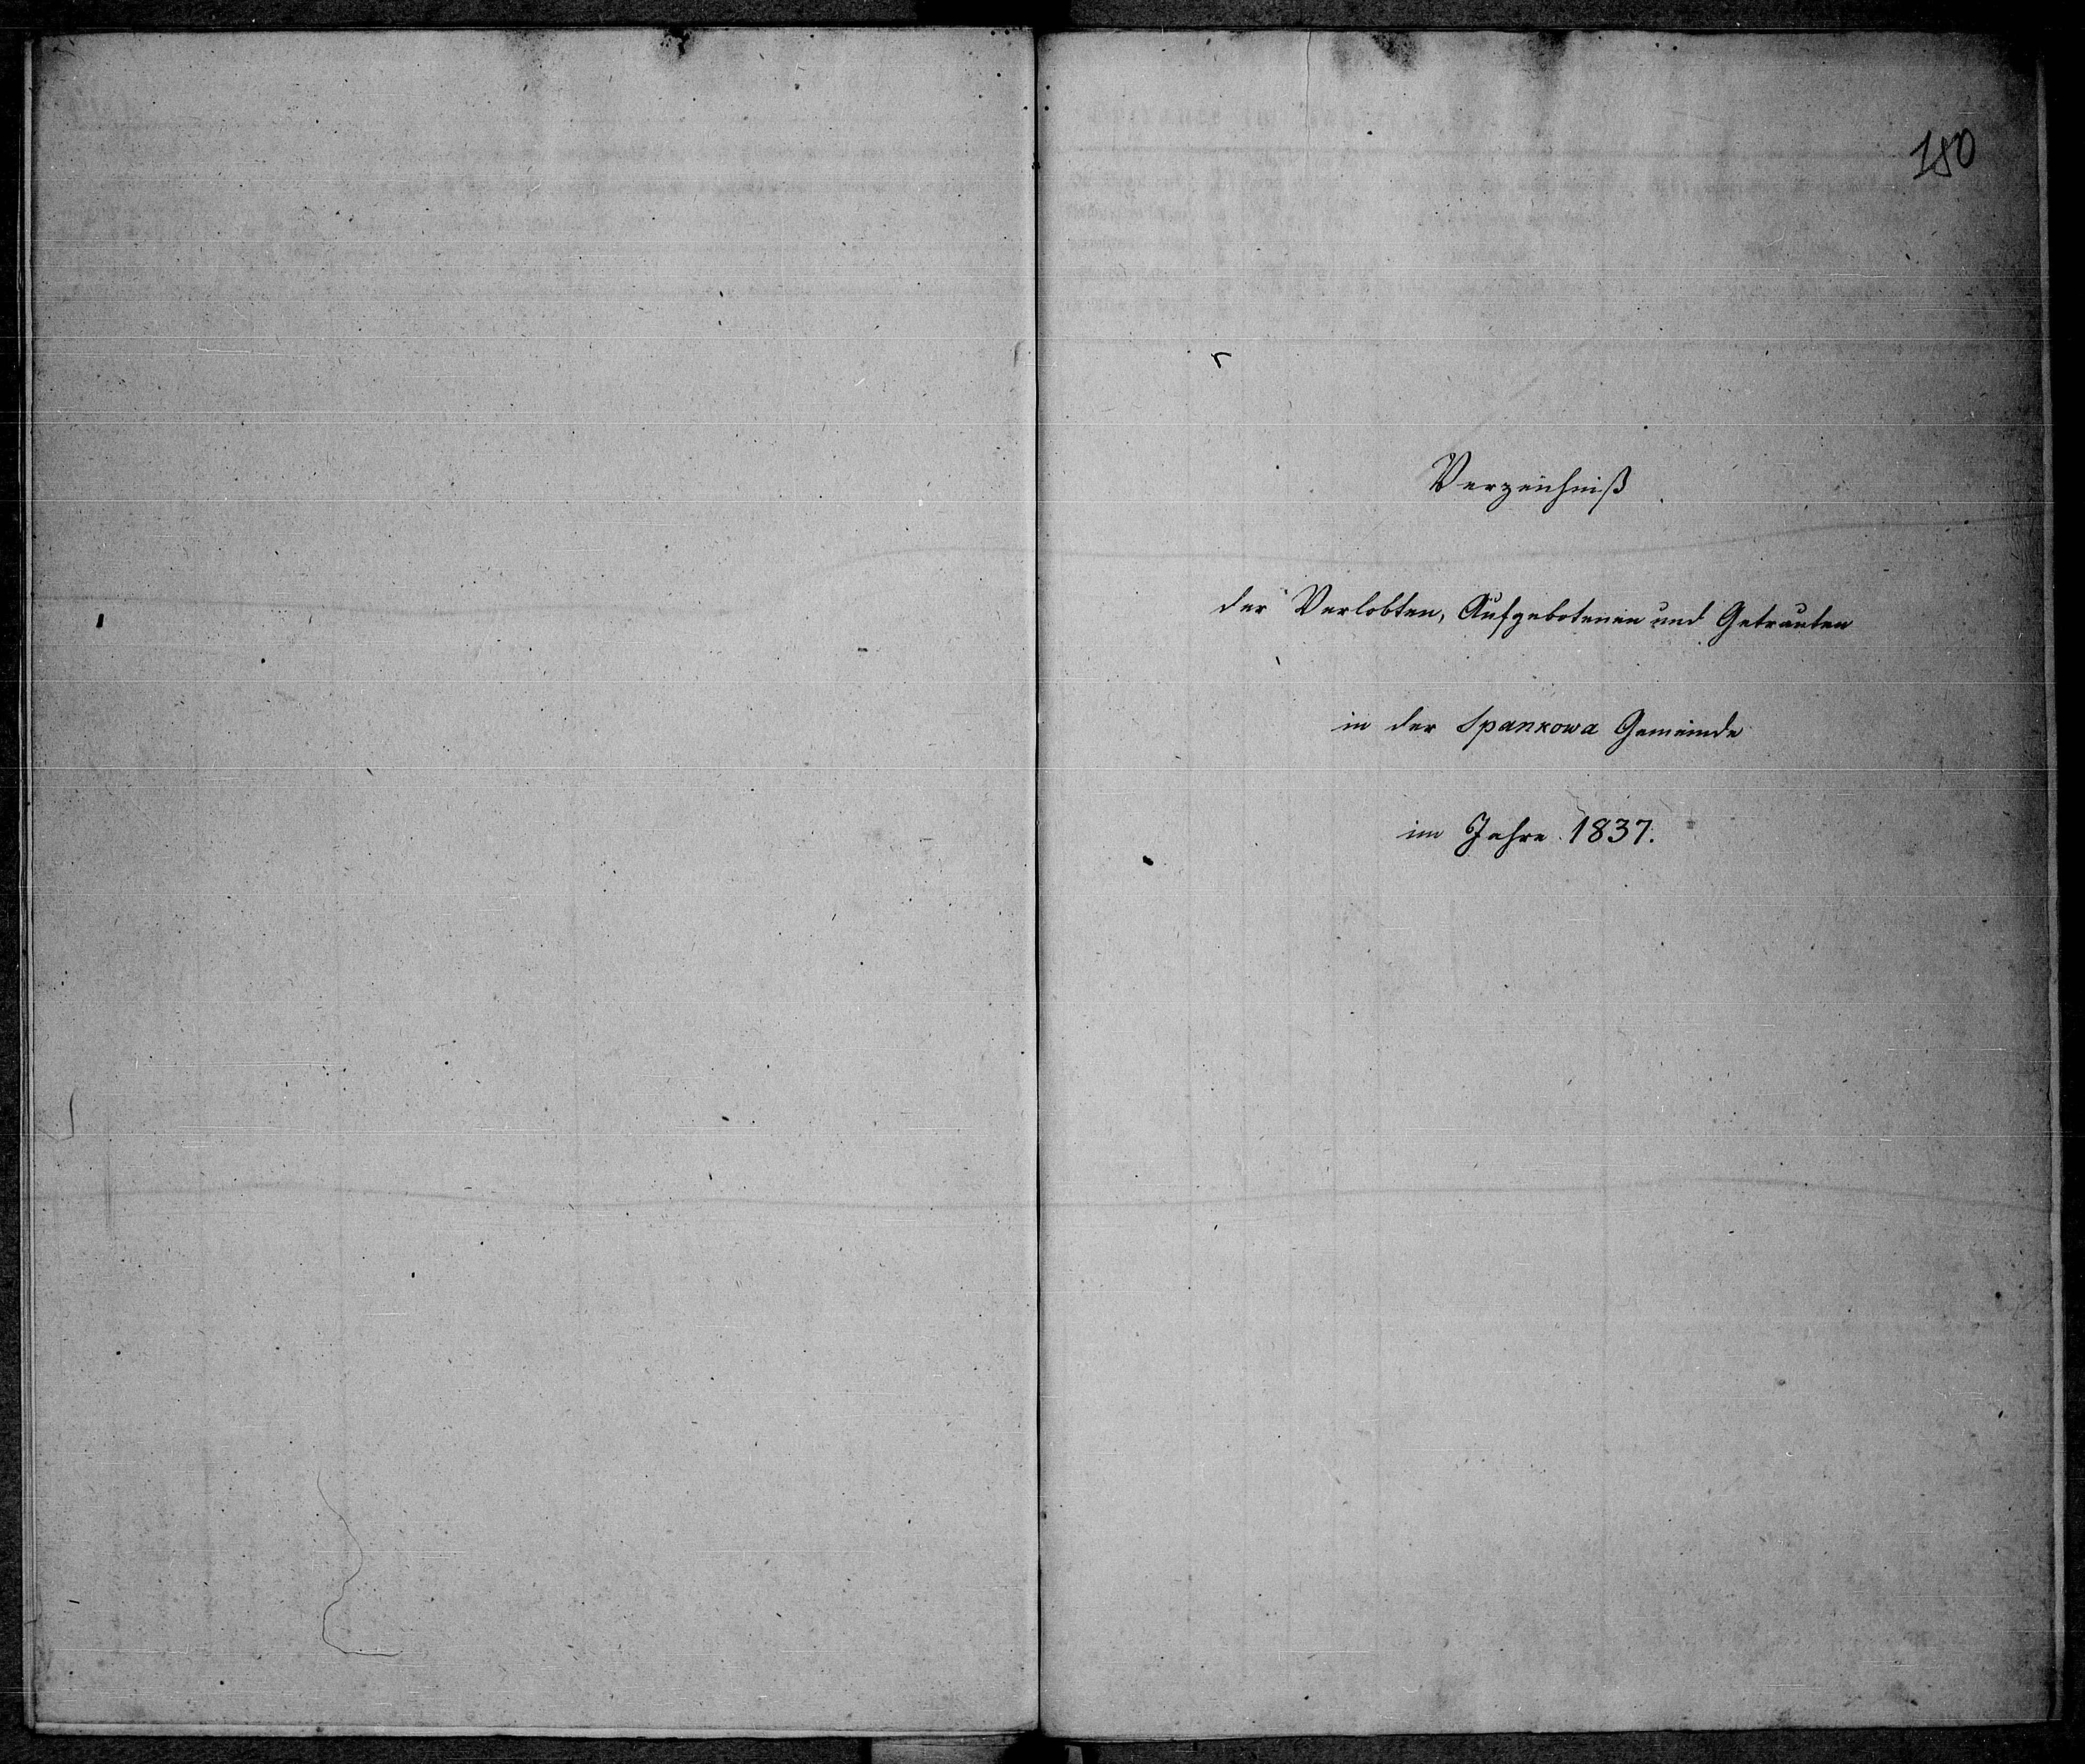 180
Verzeichniß
der Verlobten, Aufgebotenen und Getrauten
in der Spankowa Gemeinde
im Jahre 1837.